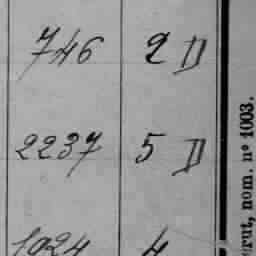 746 2 D
2237 5 D
1024 4
rut, nom. nº 1003.